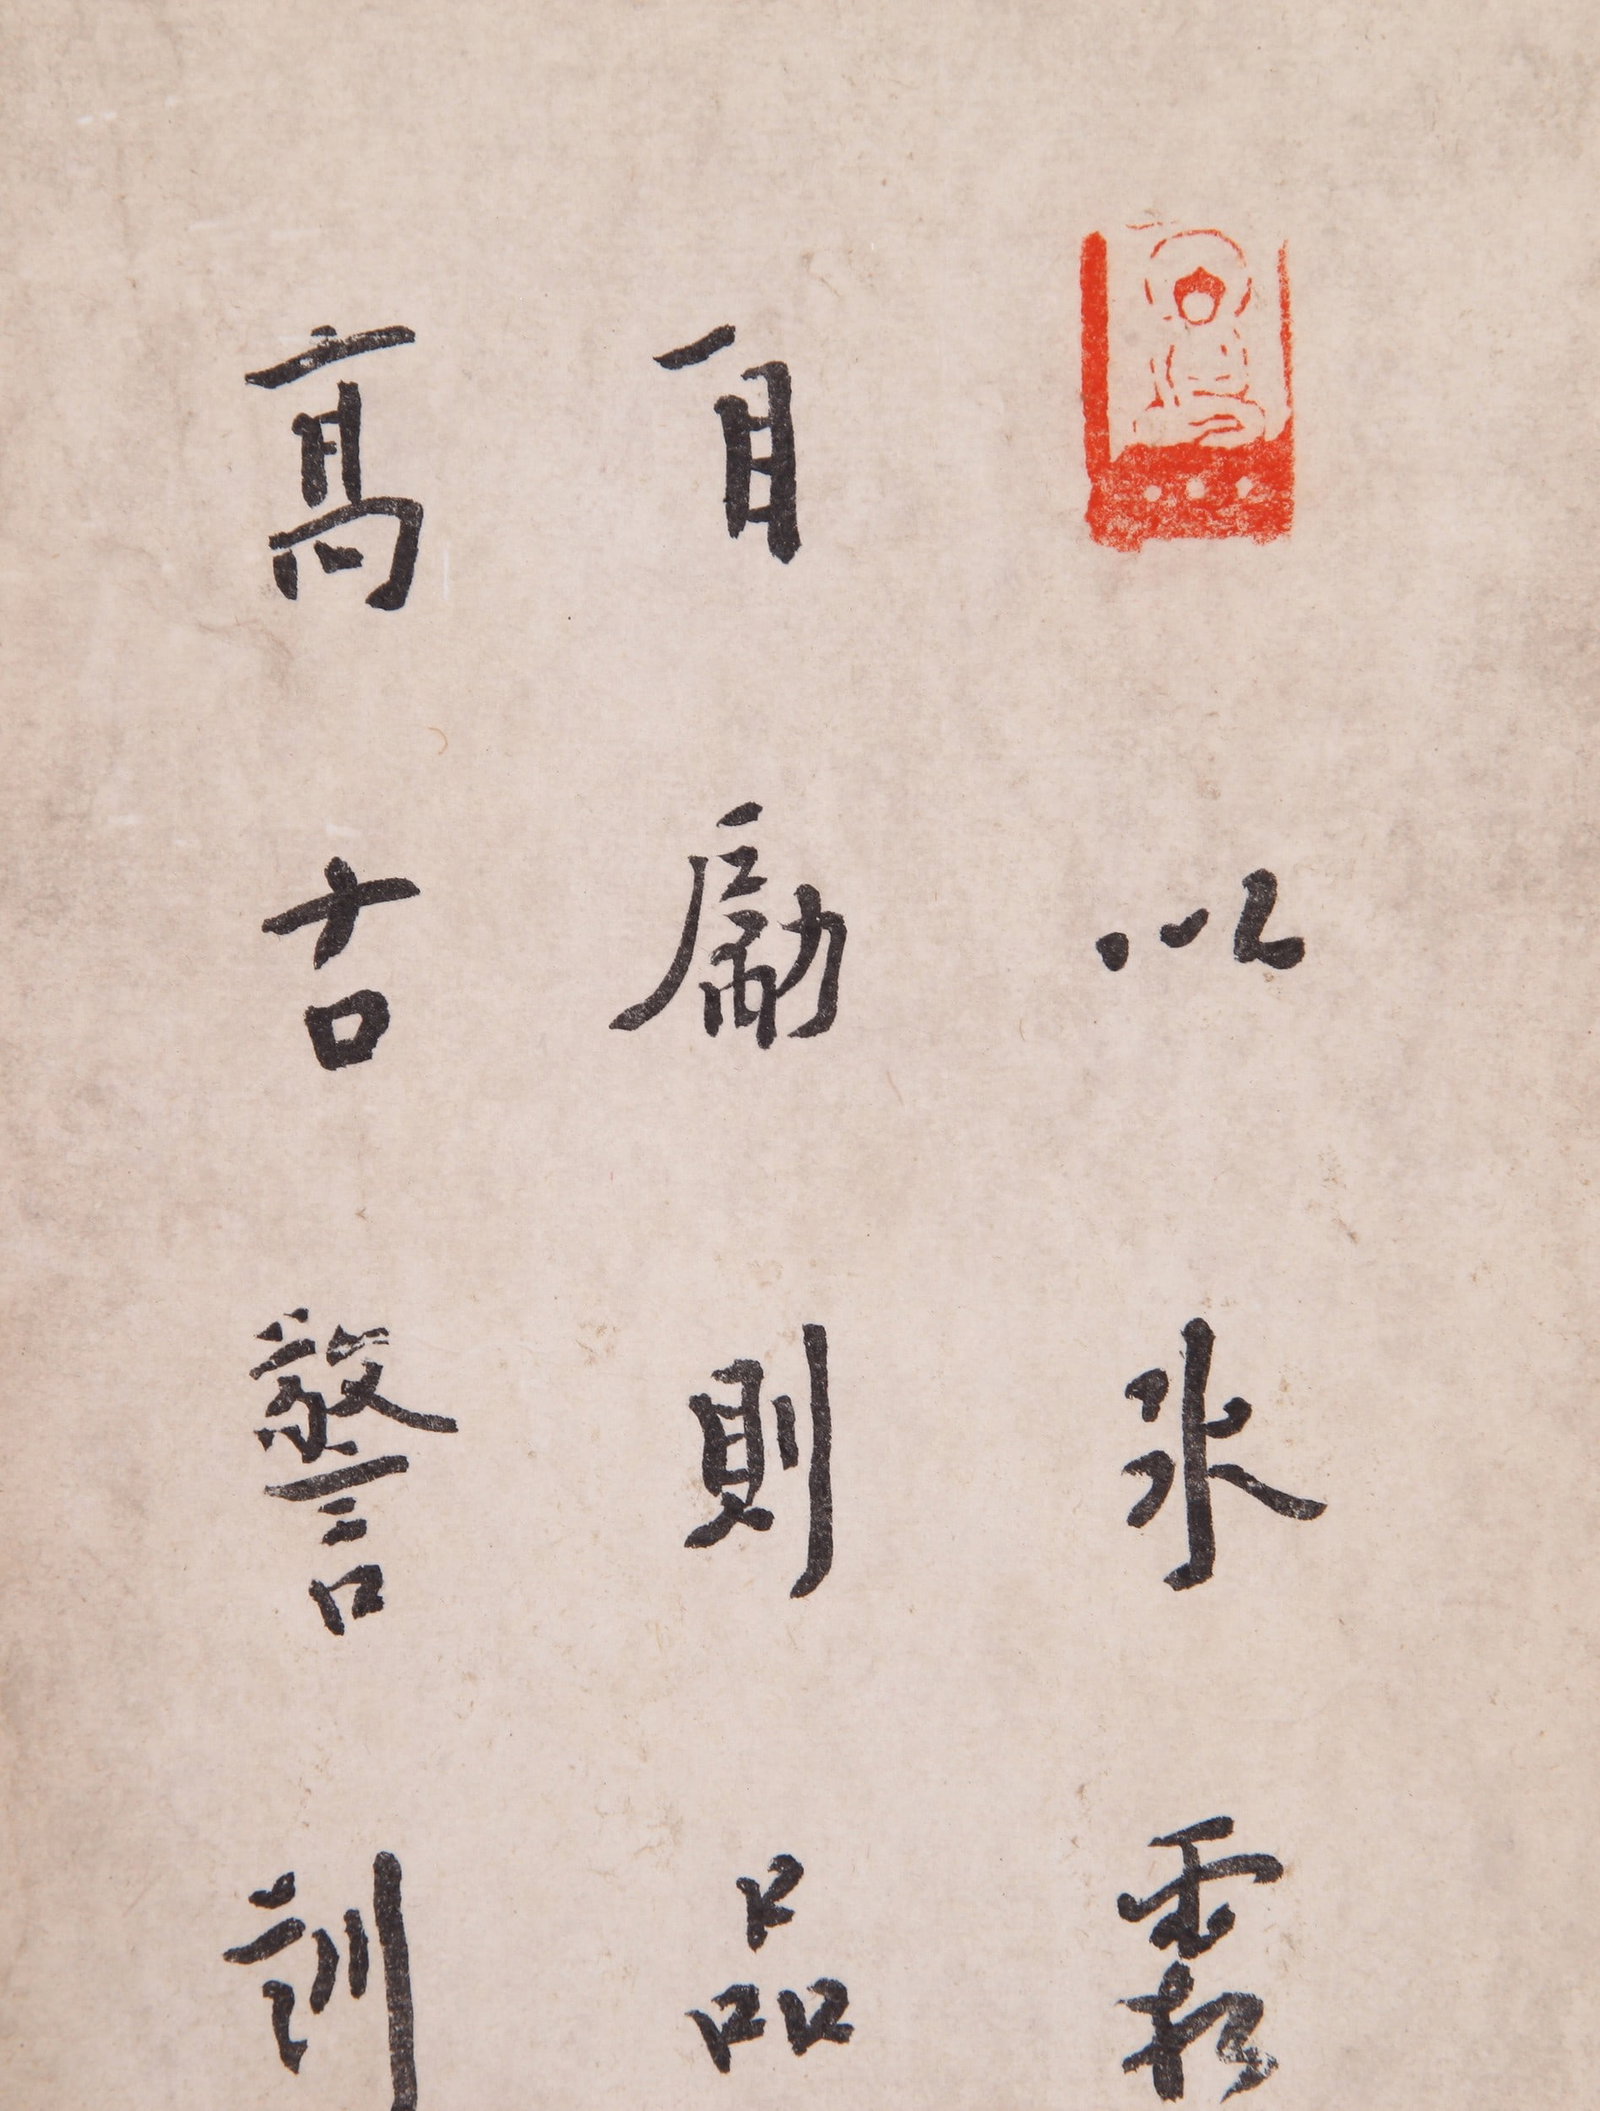 以冰霜
自勵則品
高古警訓